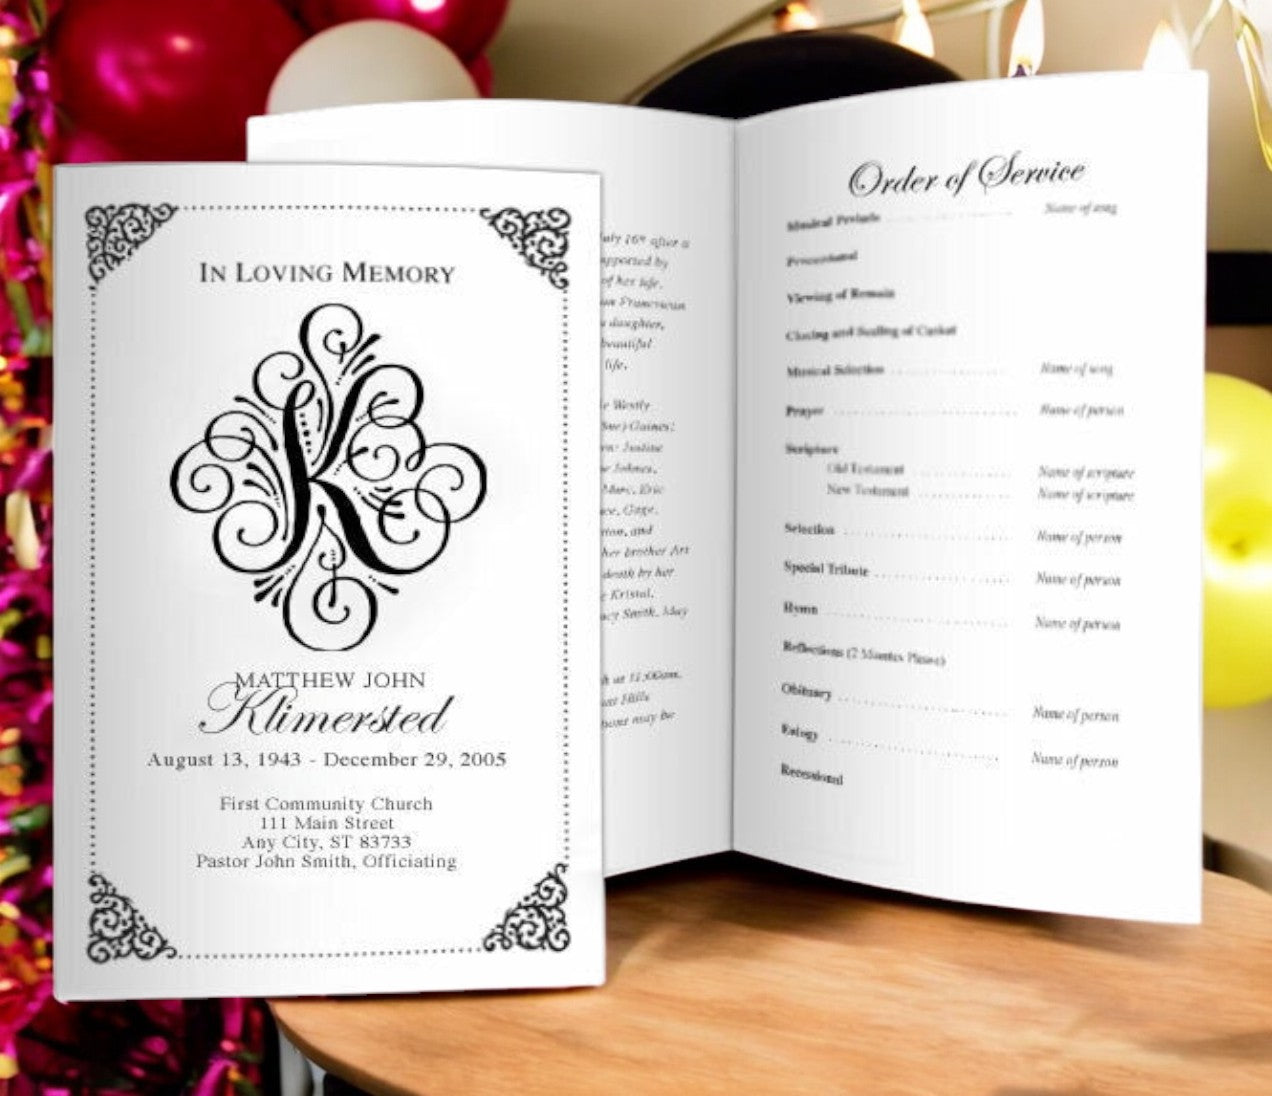 IN LOVING MEMORY
K
MATTHEW JOHN
Klimersted
August 13, 1943 - December 29, 2005
First Community Church
111 Main Street
Any City, ST 83733
Pastor John Smith, Officiating
July 16th after a
supported by
of her life.
Franciscan
daughter,
beautiful
life.
Westly
Sue) Gaines:
Justine
Johnes,
Marc, Eric
Gage,
and
her brother Art
death by her
Kristal.
Smith, May
at 11:00am.
Hills
may be
Order of Service
Musical Prelude Name of song
Processional
Viewing of Remain
Closing and Sealing of Casket
Musical Selection Name of song
Prayer Name of person
Scripture
Old Testament Name of scripture
New Testament Name of scripture
Selection Name of person
Special Tribute Name of person
Hymn Name of person
Reflections (2 Minutes Please)
Obituary Name of person
Eulogy Name of person
Recessional